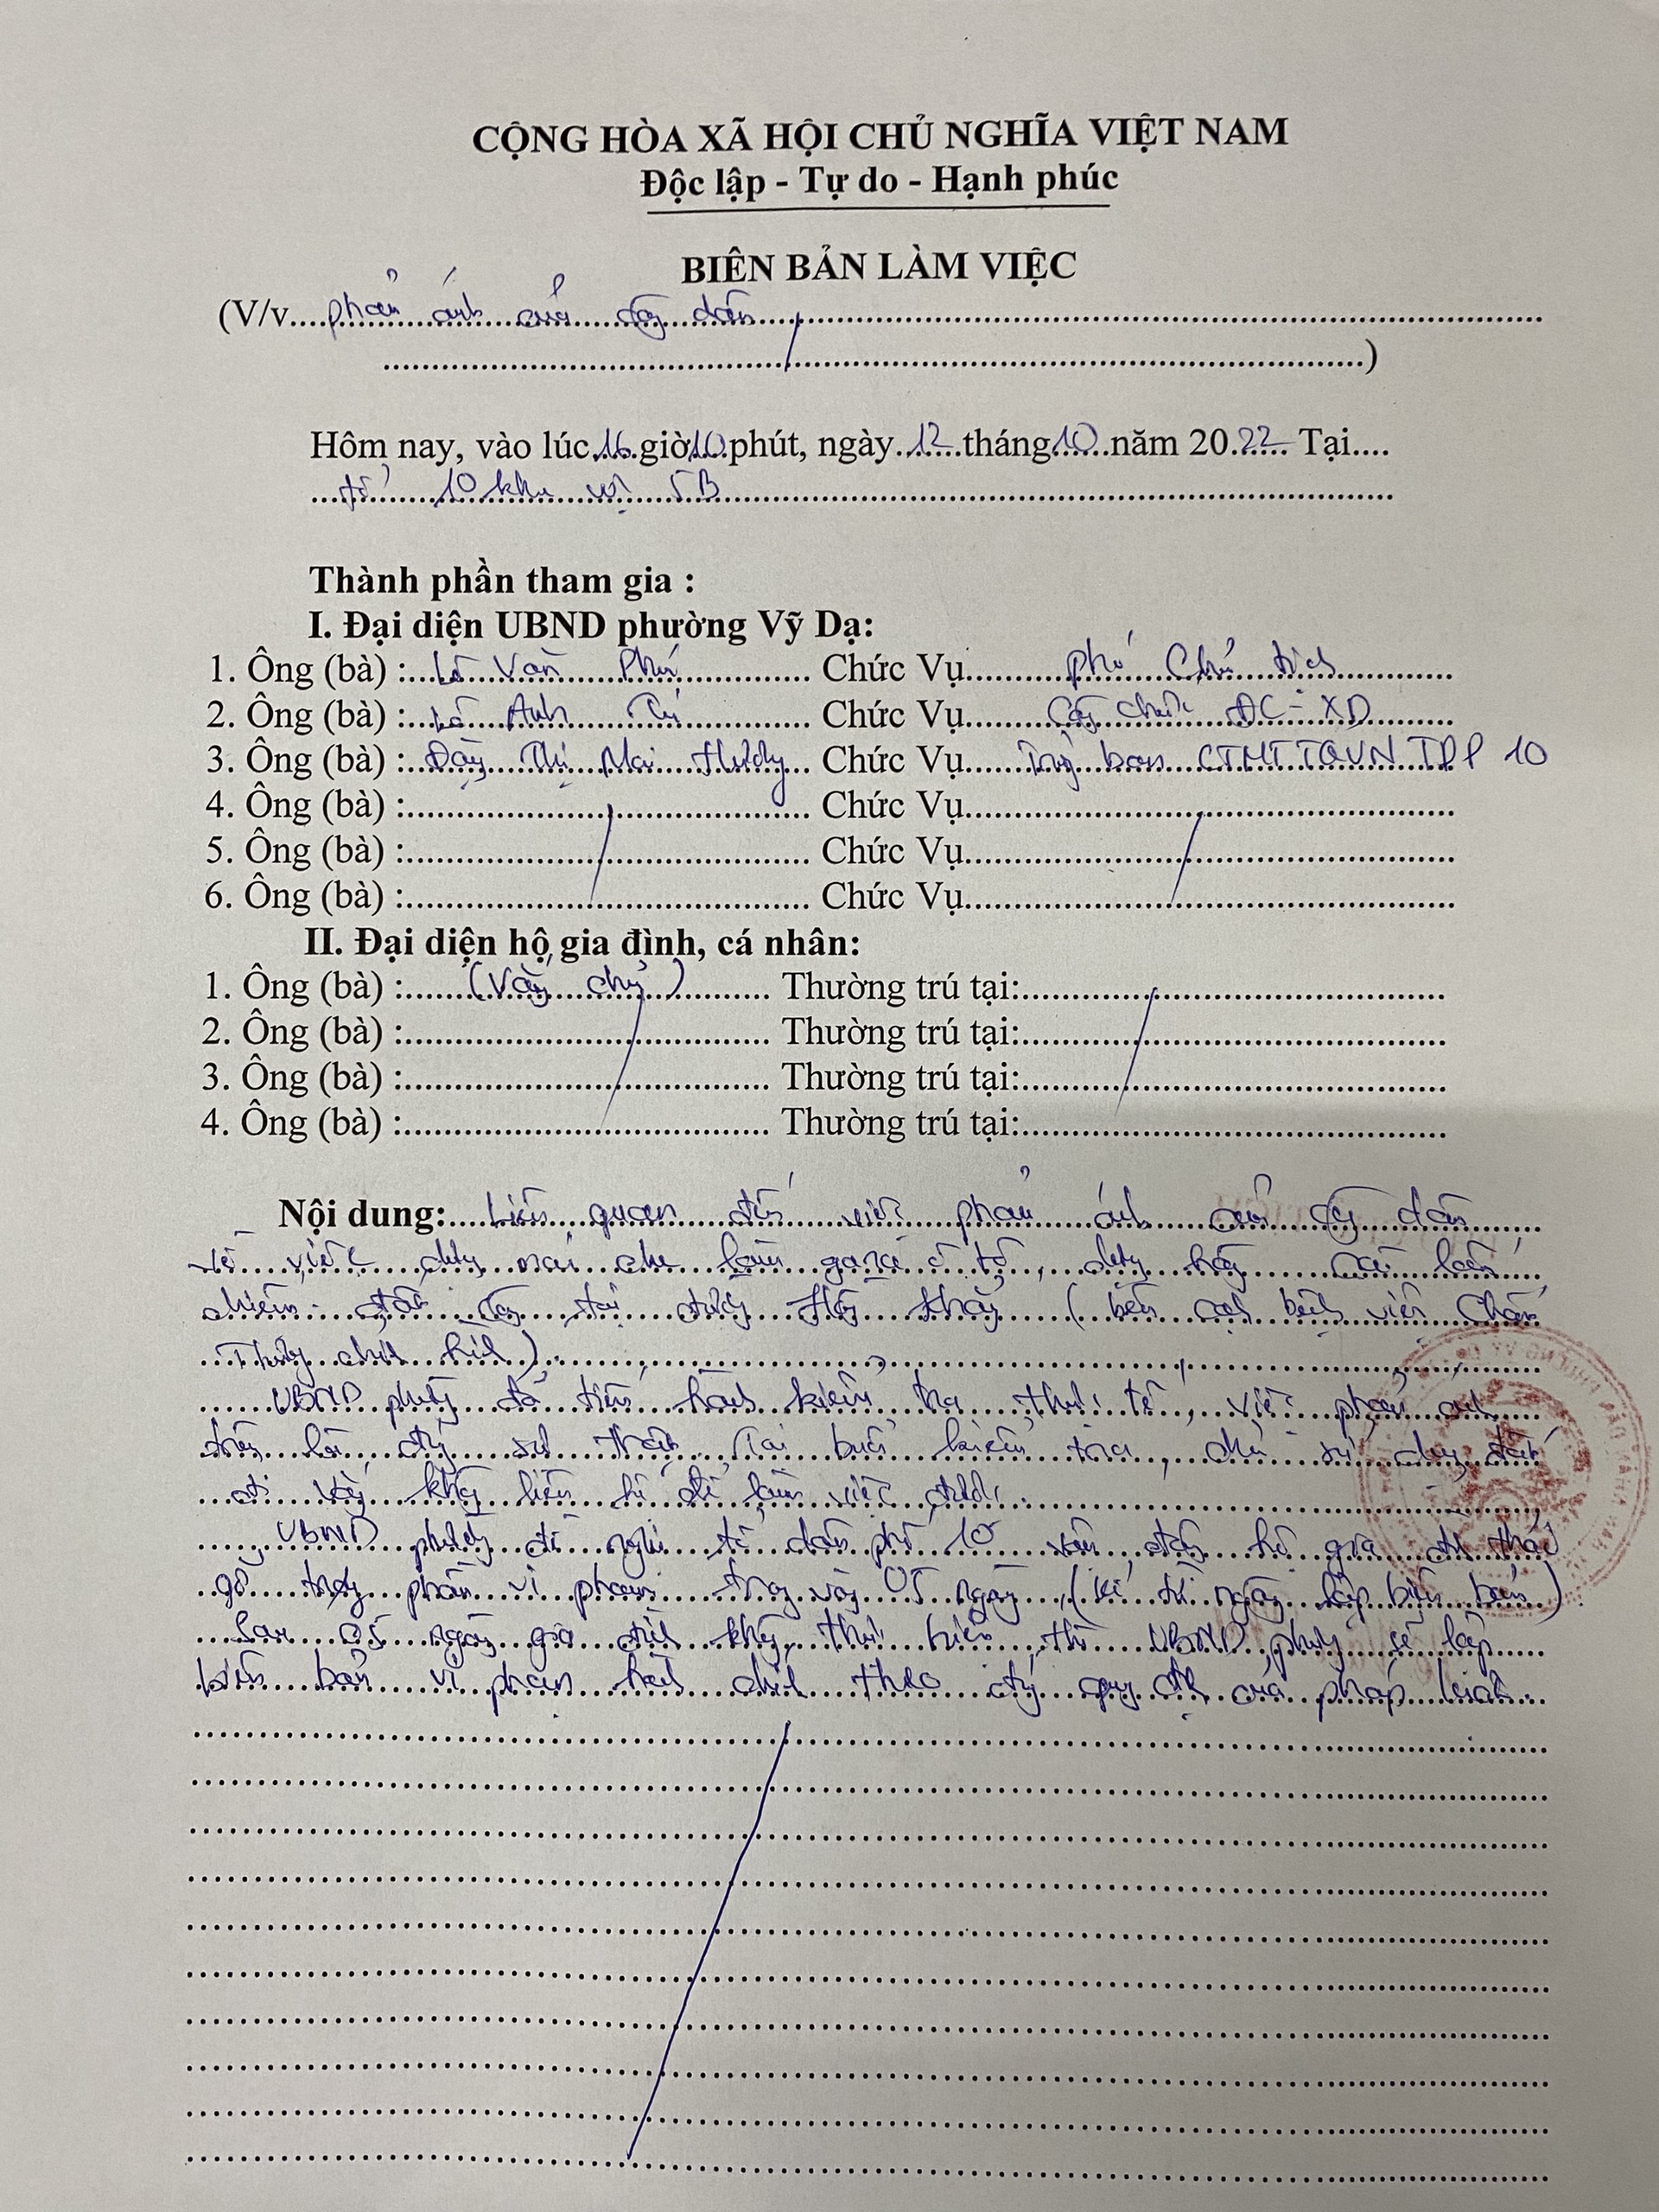 CỘNG HÒA XÃ HỘI CHỦ NGHĨA VIỆT NAM
Độc lập - Tự do - Hạnh phúc
BIÊN BẢN LÀM VIỆC
(V/v....phản ánh của công dân....
....)
Hôm nay, vào lúc 16 giờ 10 phút, ngày 12 tháng 10 năm 2022 Tại....
tổ 10 khu vực 5B
Thành phần tham gia :
I. Đại diện UBND phường Vỹ Dạ:
1. Ông (bà) : Lê Văn Phú Chức Vụ phó Chủ tịch
2. Ông (bà) : Anh Chức Vụ Công chức ĐC - XD
3. Ông (bà) : Đặng Thị Mai Hương Chức Vụ Trưởng ban CTMTTQVN TDP 10
4. Ông (bà) : Chức Vụ
5. Ông (bà) : Chức Vụ
6. Ông (bà) : Chức Vụ
II. Đại diện hộ gia đình, cá nhân:
1. Ông (bà) : (Vắng chủ) Thường trú tại:
2. Ông (bà) : Thường trú tại:
3. Ông (bà) : Thường trú tại:
4. Ông (bà) : Thường trú tại:
Nội dung: Liên quan đến việc phản ánh của công dân
về việc dựng mái che làm gara ô tô, dựng hàng rào lấn
chiếm đất công tại đường (bên cạnh bệnh viện Chấn
Thương chỉnh hình).
UBND phường đã tiến hành kiểm tra thực tế, việc phản ánh
trên là đúng sự thật. Tại buổi kiểm tra, chủ sử dụng đất
đi vắng không liên hệ để làm việc được.
UBND phường đề nghị tổ dân phố 10 vận động hộ gia đình tháo
gỡ trong phần vi phạm trong vòng 05 ngày (kể từ ngày lập biên bản)
Sau 05 ngày gia đình không thực hiện thì UBND phường sẽ lập
biên bản vi phạm hành chính theo đúng quy định của pháp luật.